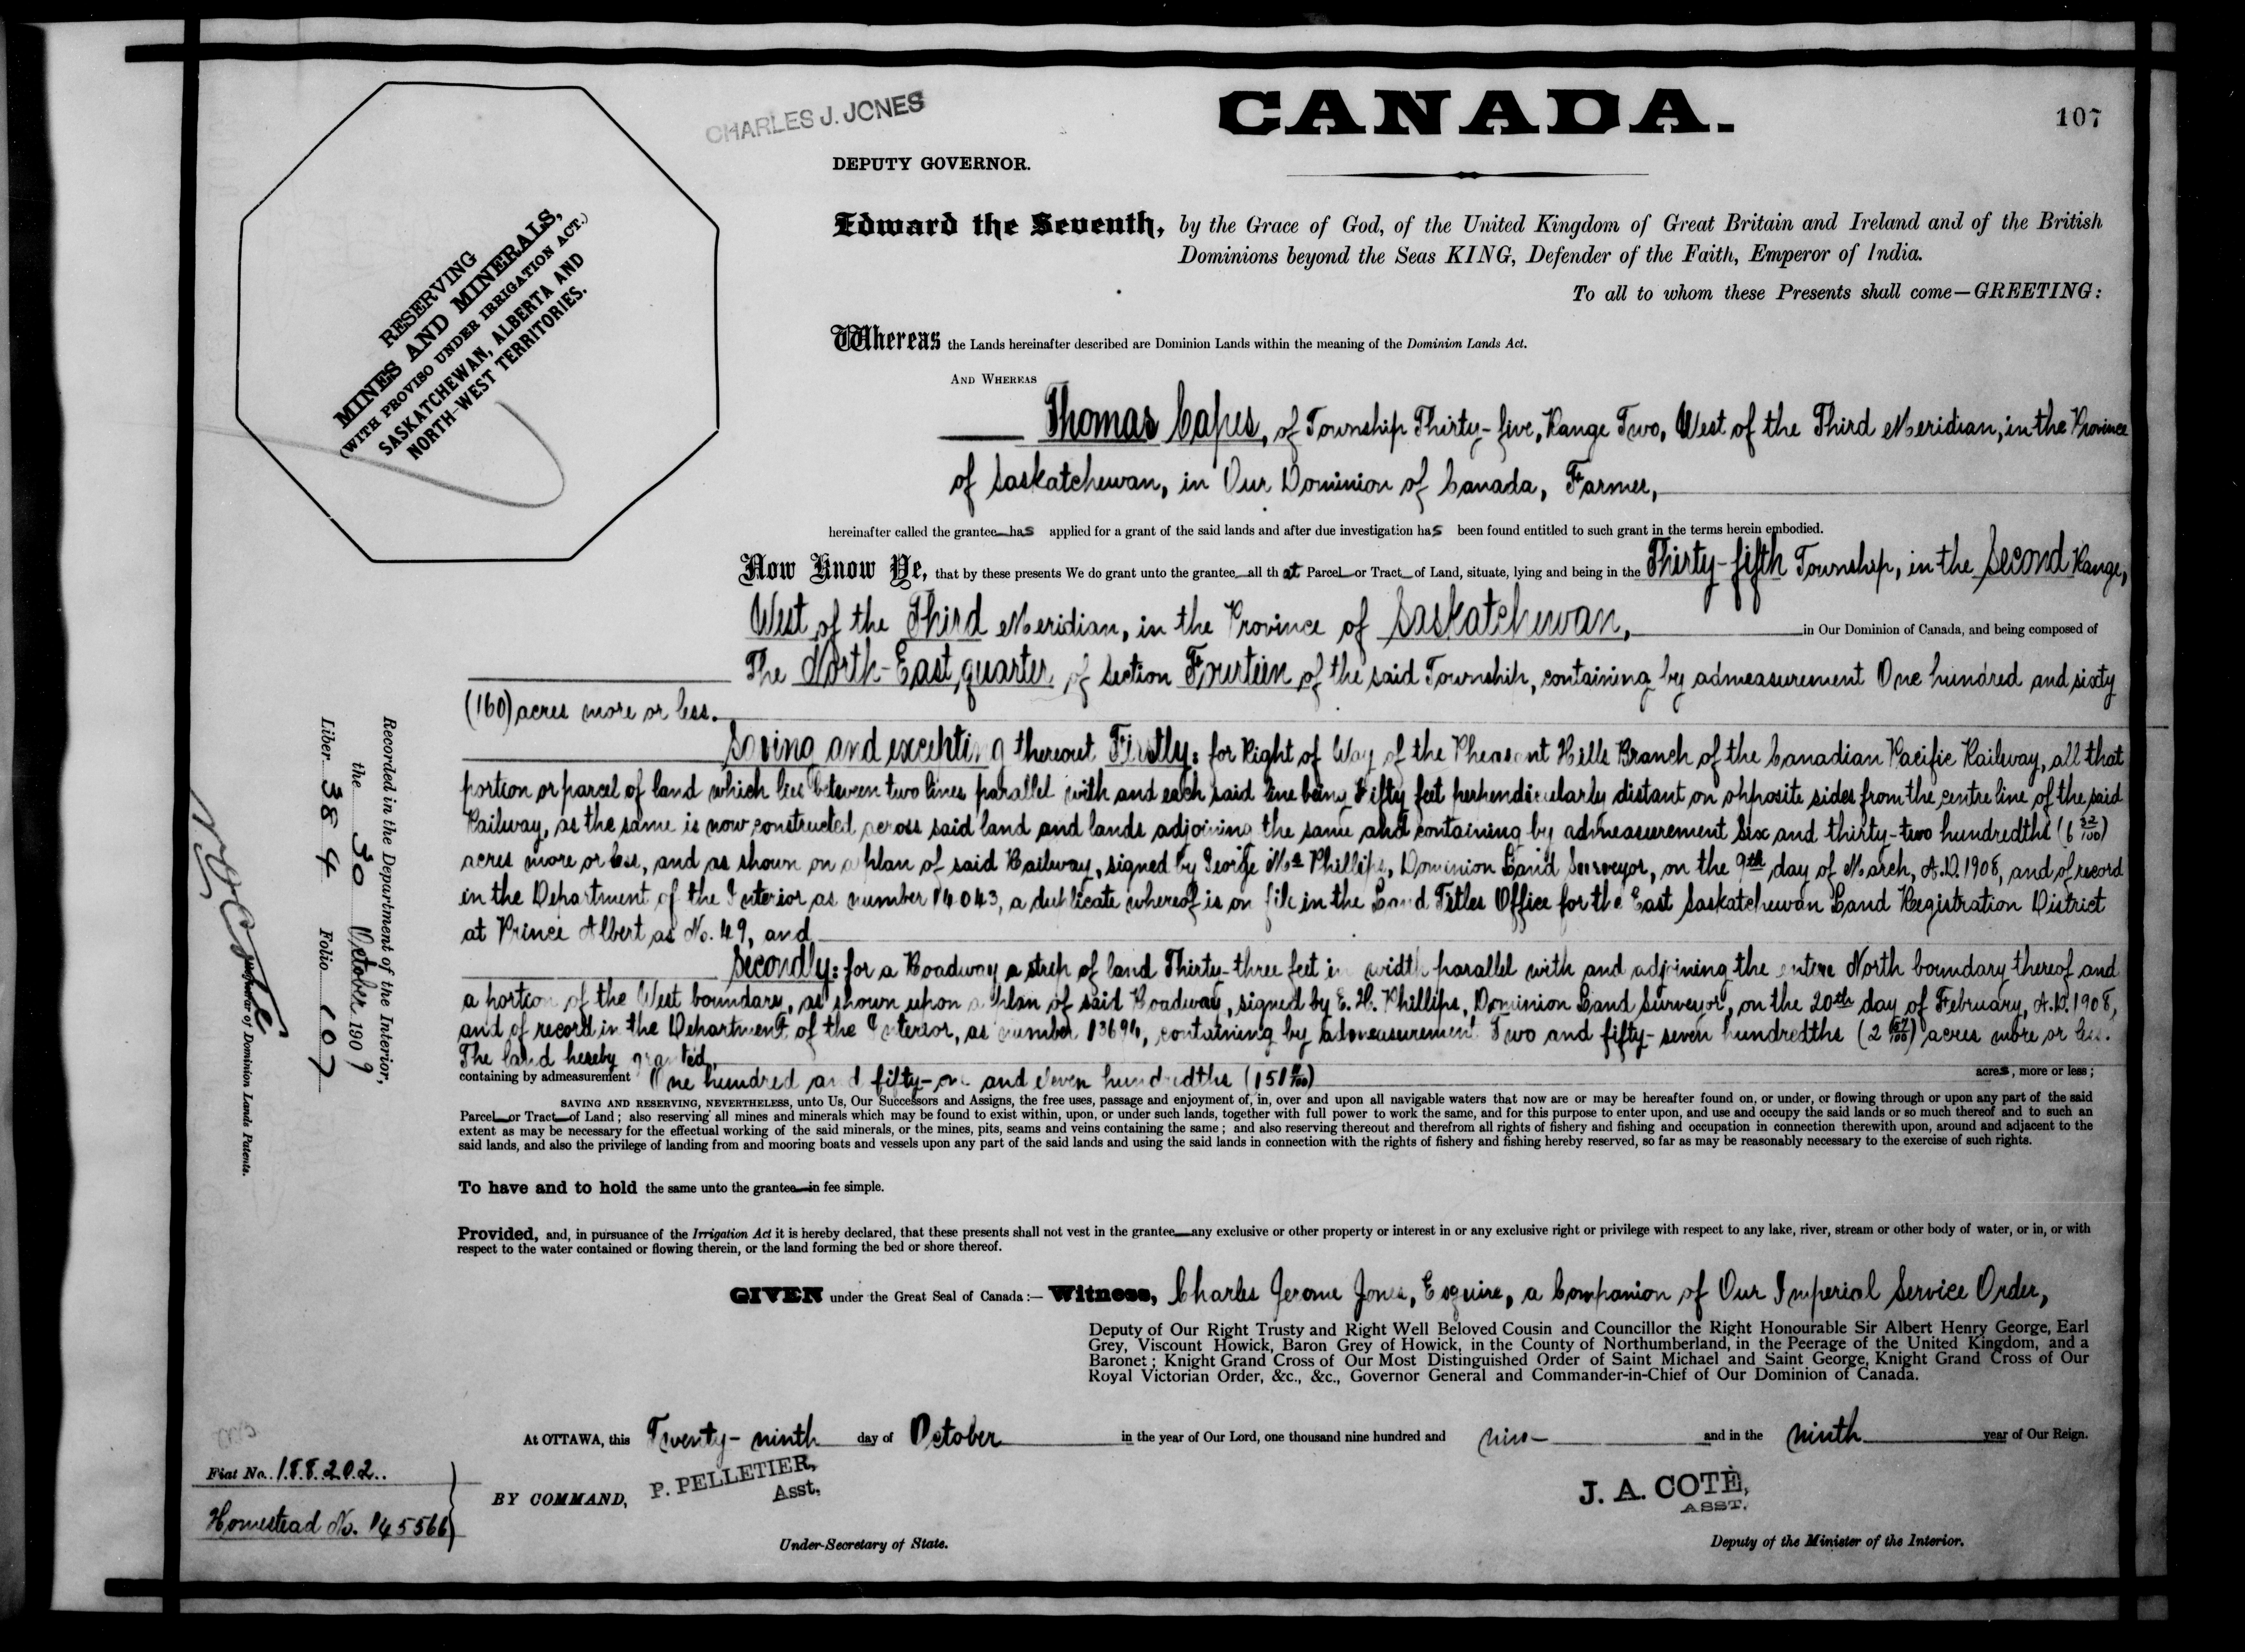 CHARLES J. JONES
CANADA.
107
DEPUTY GOVERNOR.
RESERVING
MINES AND MINERALS,
(WITH PROVISO UNDER IRRIGATION ACT.)
SASKATCHEWAN, ALBERTA AND
NORTH-WEST TERRITORIES.
Edward the Seventh, by the Grace of God, of the United Kingdom of Great Britain and Ireland and of the British
Dominions beyond the Seas KING, Defender of the Faith, Emperor of India.
To all to whom these Presents shall come—GREETING:
Whereas the Lands hereinafter described are Dominion Lands within the meaning of the Dominion Lands Act.
AND WHEREAS
Thomas Capes, of Township Thirty-five, Range Two, West of the Third Meridian, in the Province
of Saskatchewan, in Our Dominion of Canada, Farmer,
hereinafter called the grantee has applied for a grant of the said lands and after due investigation has been found entitled to such grant in the terms herein embodied.
Now Know Ye, that by these presents We do grant unto the grantee all that Parcel or Tract of Land, situate, lying and being in the Thirty-fifth Township, in the Second Range,
West of the Third Meridian, in the Province of Saskatchewan, in Our Dominion of Canada, and being composed of
The North-East quarter of Section Fourteen of the said Township, containing by admeasurement One hundred and sixty
(160) acres more or less.
Saving and excepting thereout Firstly: for Right of Way of the Pheasant Hills Branch of the Canadian Pacific Railway, all that
portion or parcel of land which lies between two lines parallel with and each said line being Fifty feet perpendicularly distant on opposite sides from the centre line of the said
Railway, as the same is now constructed across said land and lands adjoining the same and containing by admeasurement Six and thirty-two hundredths (6 32/100)
acres more or less, and as shown on a plan of said Railway, signed by George Mc Phillips, Dominion Land Surveyor, on the 9th day of March, A.D. 1908, and of record
in the Department of the Interior as number 14043, a duplicate whereof is on file in the Land Titles Office for the East Saskatchewan Land Registration District
at Prince Albert as No. 49, and
Secondly: for a Roadway a strip of land Thirty-three feet in width parallel with and adjoining the entire North boundary thereof and
a portion of the West boundary, as shown upon a plan of said Roadway, signed by E. H. Phillips, Dominion Land Surveyor, on the 20th day of February, A.D. 1908,
and of record in the Department of the Interior, as number 13694, containing by admeasurement Two and fifty-seven hundredths (2 57/100) acres more or less.
The land hereby granted,
containing by admeasurement One hundred and fifty-one and eleven hundredths (151 11/100) acres, more or less;
SAVING AND RESERVING, NEVERTHELESS, unto Us, Our Successors and Assigns, the free uses, passage and enjoyment of, in, over and upon all navigable waters that now are or may be hereafter found on, or under, or flowing through or upon any part of the said
Parcel or Tract of Land; also reserving all mines and minerals which may be found to exist within, upon, or under such lands, together with full power to work the same, and for this purpose to enter upon, and use and occupy the said lands or so much thereof and to such an
extent as may be necessary for the effectual working of the said minerals, or the mines, pits, seams and veins containing the same; and also reserving thereout and therefrom all rights of fishery and fishing and occupation in connection therewith upon, around and adjacent to the
said lands, and also the privilege of landing from and mooring boats and vessels upon any part of the said lands and using the said lands in connection with the rights of fishery and fishing hereby reserved, so far as may be reasonably necessary to the exercise of such rights.
To have and to hold the same unto the grantee in fee simple.
Provided, and, in pursuance of the Irrigation Act it is hereby declared, that these presents shall not vest in the grantee any exclusive or other property or interest in or any exclusive right or privilege with respect to any lake, river, stream or other body of water, or in, or with
respect to the water contained or flowing therein, or the land forming the bed or shore thereof.
GIVEN under the Great Seal of Canada:— Witness, Charles Jerome Jones, Esquire, a Companion of Our Imperial Service Order,
Deputy of Our Right Trusty and Right Well Beloved Cousin and Councillor the Right Honourable Sir Albert Henry George, Earl
Grey, Viscount Howick, Baron Grey of Howick, in the County of Northumberland, in the Peerage of the United Kingdom, and a
Baronet; Knight Grand Cross of Our Most Distinguished Order of Saint Michael and Saint George, Knight Grand Cross of Our
Royal Victorian Order, &c., &c., Governor General and Commander-in-Chief of Our Dominion of Canada.
At OTTAWA, this Twenty-ninth day of October in the year of Our Lord, one thousand nine hundred and nine and in the ninth year of Our Reign.
BY COMMAND,
P. PELLETIER,
Asst,
Under-Secretary of State.
J. A. COTÉ,
ASST.
Deputy of the Minister of the Interior.
Fiat No. 188202..
Homestead No. 145566
Recorded in the Department of the Interior,
the 30 October 1909
Liber 384 Folio 107
Registrar of Dominion Lands Patents.